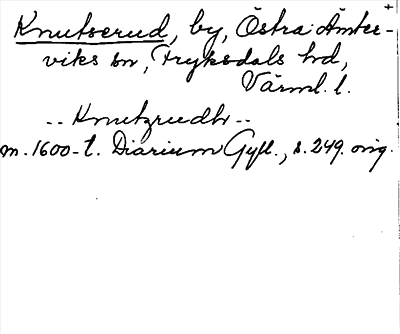 Knutserud, by, Östra Ämter-
viks sn, Fryksdals hd,
Värml. l.
-- Knutzrudh --
m. 1600-t. Diarium Gyll., s. 249. orig.